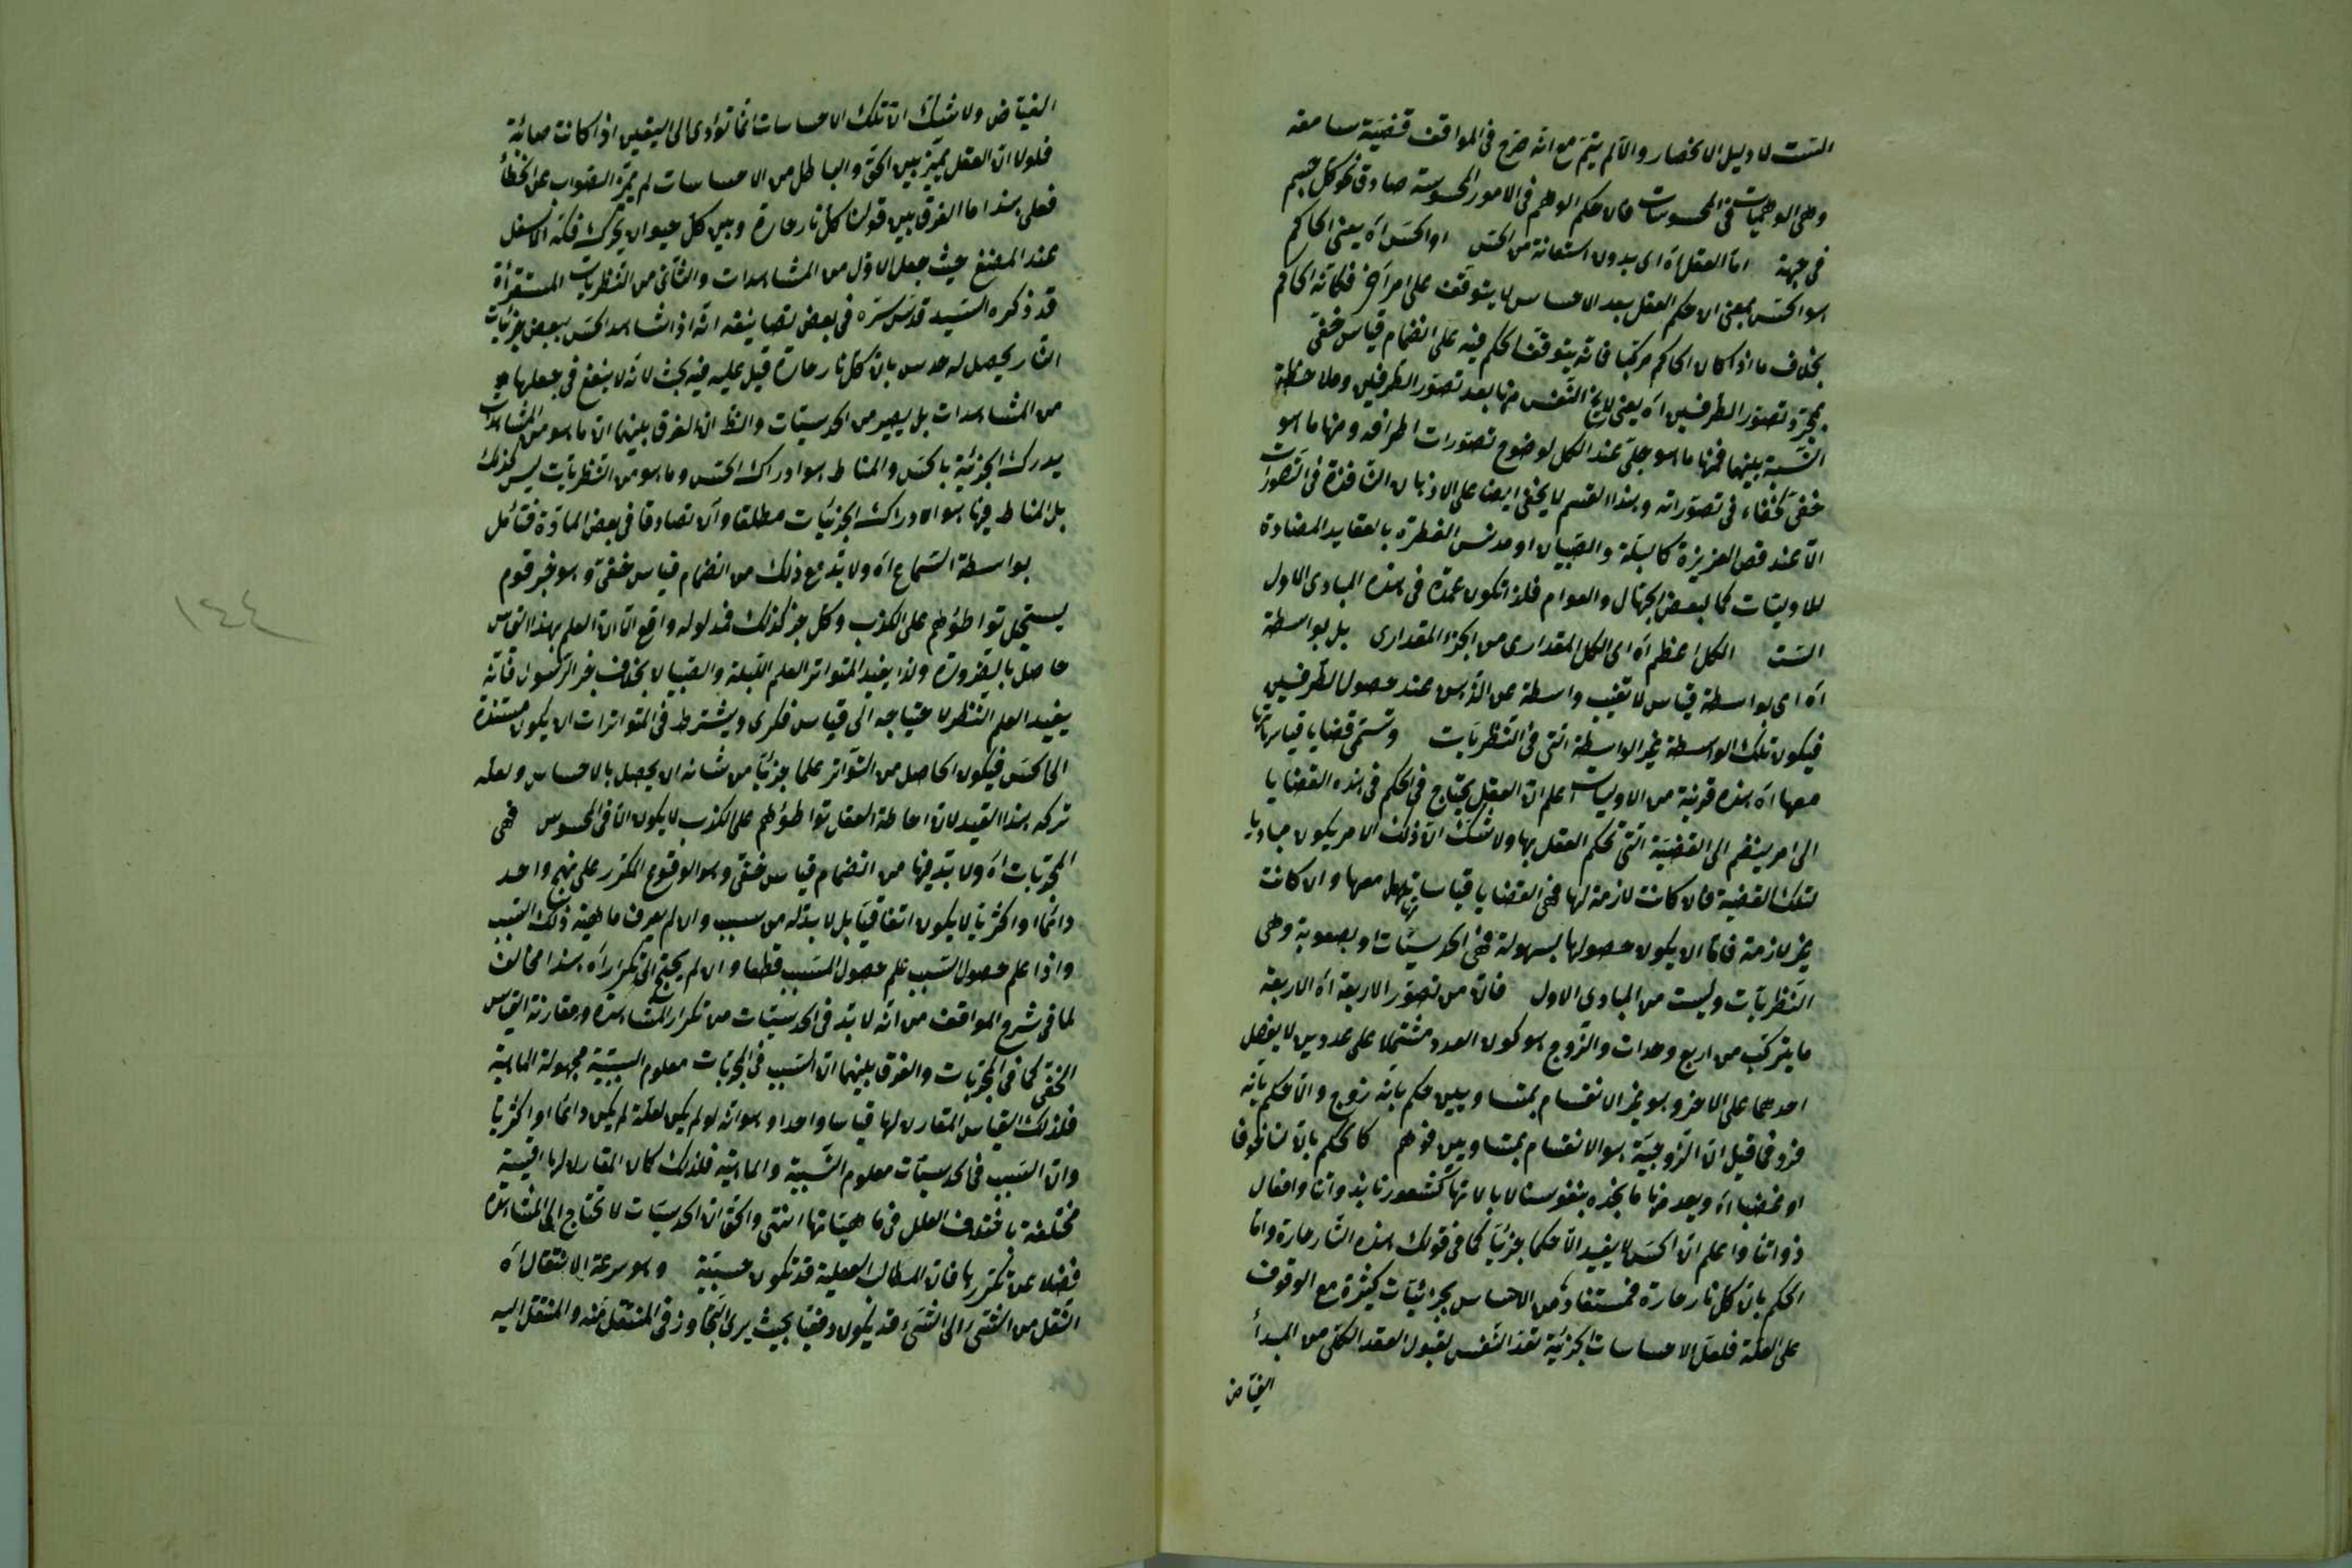 الست لا دليل الانحصار والا لم يتم مع انه صرح فى المواقف قضية سابعة
وهى الوهميات فى المحسوسات فان حكم الوهم فى الامور المحسوسة صادق نحو كل جسم
فى جهة اما العقل اه اى بدون استعانة من الحس او الحس اه يعنى الحاكم
هو الحس بمعنى ان حكم العقل بعد الاحساس لا يتوقف على امر آخر فكانه الحاكم
بخلاف ما اذا كان الحاكم مركبا فانه يتوقف الحكم فيه على انضمام قياس خفى
بمجرد تصور الطرفين اه يعنى النفس منها بعد تصور الطرفين وملاحظة
النسبة بينهما فمنها ما هو جلى عند الكل لوضوح تصورات اطرافه ومنها ما هو
خفى لخفاء فى تصوراته وهذا القسم لا يخفى ايضا على الاذهان النافذة فى التصورات
الا عند ناقص الغريزة كالبله والصبيان او مدنس الفطرة بالعقايد المضادة
للاوليات كما لبعض الجهال والعوام فلذا تكون عمدة فى هذه المبادى الاول
الست الكل اعظم اه اى الكل المقدارى من الجزء المقدارى بل بواسطة
اه اى بواسطة قياس لا تغيب واسطة عن الذهن عند حصول الطرفين
فيكون تلك الواسطة غير الواسطة التى فى النظريات وتسمى قضايا قياساتها
معها اه هذه قريبة من الاوليات اعلم ان العقل يحتاج فى الحكم فى هذه القضايا
الى امر ينضم الى القضية التى تحكم العقل بها ولا شك ان ذلك الامر يكون مباديا
لتلك القضية فان كانت لازمة لها فهى القضايا قياساتها معها وان كانت
غير لازمة فاما ان يكون حصولها بسهولة فهى الحدسيات او بصعوبة وهى
النظريات وليست من المبادى الاول فان من تصور الاربعة اه الاربعة
ما يتركب من اربع وحدات والزوج هو كون العدد مشتملا على عددين لا يفضل
احدهما على الاخر وهو غير الانقسام بمتساويين حكم بانه زوج والا حكم بانه
فرد فما قيل ان الزوجية هو الانقسام بمتساويين فوهم كالحكم بان لنا خوفا
او غضبا اه ويعد منها ما نجده بنفوسنا لا بالاتها كشعورنا بذواتنا وافعال
ذواتنا واعلم ان الحس لا يفيد الا حكما جزئيا كما فى قولك هذه النار حارة واما
الحكم بان كل نار حارة فمستفاد من الاحساس بجزئيات كثيرة مع الوقوف
على العلة فلعل الاحساسات الجزئية تعد النفس لقبول العقد الكلى من المبدأ
الفياض
الفياض ولا شك ان تلك الاحساسات انما تؤدى الى اليقين اذا كانت صائبة
فلولا ان العقل يميز بين الحق والباطل من الاحساسات لم يميز الصواب عن الخطأ
فعلى هذا ما الفرق بين قولنا كل نار حارة وبين كل حيوان يتحرك فكه الاسفل
عند المضغ حيث جعل الاول من المشاهدات والثانى من النظريات المستقرأة
قد ذكره السيد قدس سره فى بعض تصانيفه انه اذا شاهد الحس ببعض جزئيات
النار يحصل له حدس بان كل نار حارة قيل عليه فيه بحث لانه لا ينفع فى جعلها
من المشاهدات بل يصير من الحدسيات والظ ان الفرق بينهما ان ما هو من المشاهدات
يدرك الجزئية بالحس والمناط هو ادراك الحس وما هو من النظريات ليس كذلك
بل المناط فيها هو الادراك الجزئيات مطلقا وان تصادقا فى بعض المادة فتأمل
بواسطة السماع اه ولا بد مع ذلك من انضمام قياس خفى وهو خبر قوم
يستحيل تواطؤهم على الكذب وكل خبر كذلك فمدلوله واقع الا ان العلم بهذا القياس
حاصل بالضرورة ولذا يفيد المتواتر العلم للبله والصبيان بخلاف خبر الرسول فانه
يفيد العلم النظر لاحتياجه الى قياس فكرى ويشترط فى المتواترات ان يكون مستندة
الى الحس فيكون الحاصل من التواتر علما جزئيا من شانه ان يحصل بالاحساس ولعله
تركه هذا القيد لان احاطة العقل تواطؤهم على الكذب لا يكون الا فى المحسوس فهى
المجربات اه ولا بد فيها من انضمام قياس خفى وهو الوقوع المكرر على نهج واحد
دائما او اكثريا لا يكون اتفاقيا بل لا بد له من سبب وان لم يعرف ماهية ذلك السبب
واذا علم حصول السبب علم حصول المسبب قطعا وان لم يحتج الى تكرار اه هذا مخالف
لما فى شرح المواقف من انه لا بد فى الحدسيات من تكرار المشاهدة ومقارنة القياس
الخفى كما فى المجربات والفرق بينهما ان السبب فى المجربات معلوم السببية مجهولة الماهية
فلذلك القياس المقارن لها قياسا واحدا وهو انه لو لم يكن لعلة لم يكن دائما او اكثريا
وان السبب فى الحدسيات معلوم السببية والماهية فلذلك كان المقارن لها اقيسة
مختلفة باختلاف العلل فى ماهياتها انتهى والحق ان الحدسيات لا تحتاج الى المشاهدة
فضلا عن تكررها فان المطالب العقلية قد تكون حدسية وهو سرعة الانتقال اه
النقل من الشئ الى الشئ قد يكون دفعيا بحيث يرى التجاوز فى المنتقل منه والمنتقل اليه
١٤٤